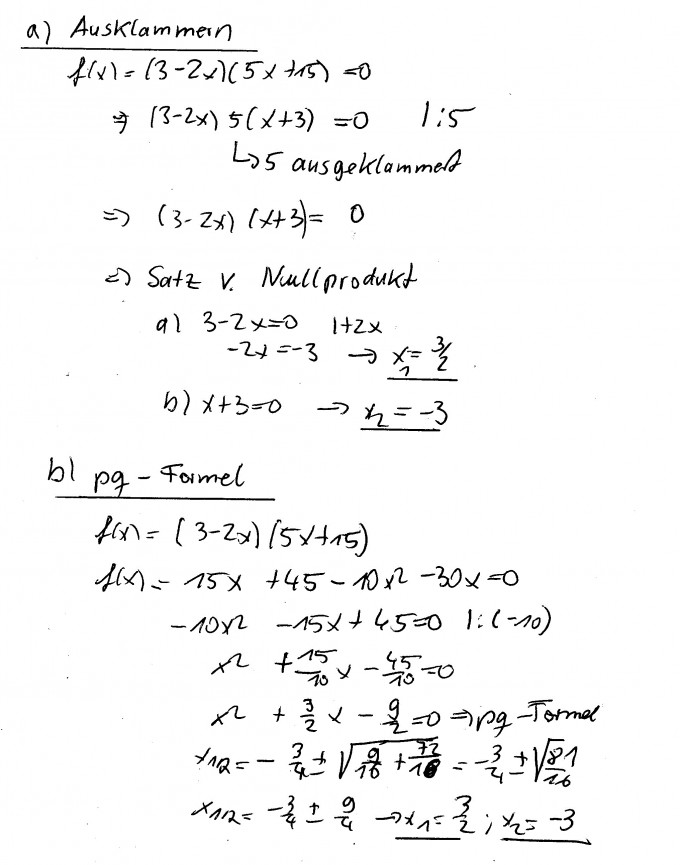 a) Ausklammern
f(x) = (3-2x)(5x+15) =0
⇒ (3-2x) 5(x+3) =0 |:5
↳5 ausgeklammert
=> (3-2x) (x+3)= 0
=> Satz v. Nullprodukt
a) 3-2x=0 |+2x
-2x=-3 → x₁= 3/2
b) x+3=0 → x₂ = -3
b) pq-Formel
f(x) = (3-2x)(5x+15)
f(x) = 15x +45 - 10x² -30x=0
-10x² -15x + 45=0 |:(-10)
x² + 15/10 x - 45/10 =0
x² + 3/2 x - 9/2 =0 => pq-Formel
x1/2 = - 3/4 ± √(9/16 + 72/16) = -3/4 ± √(81/16)
x1/2 = -3/4 ± 9/4 → x₁= 3/2 ; x₂= -3